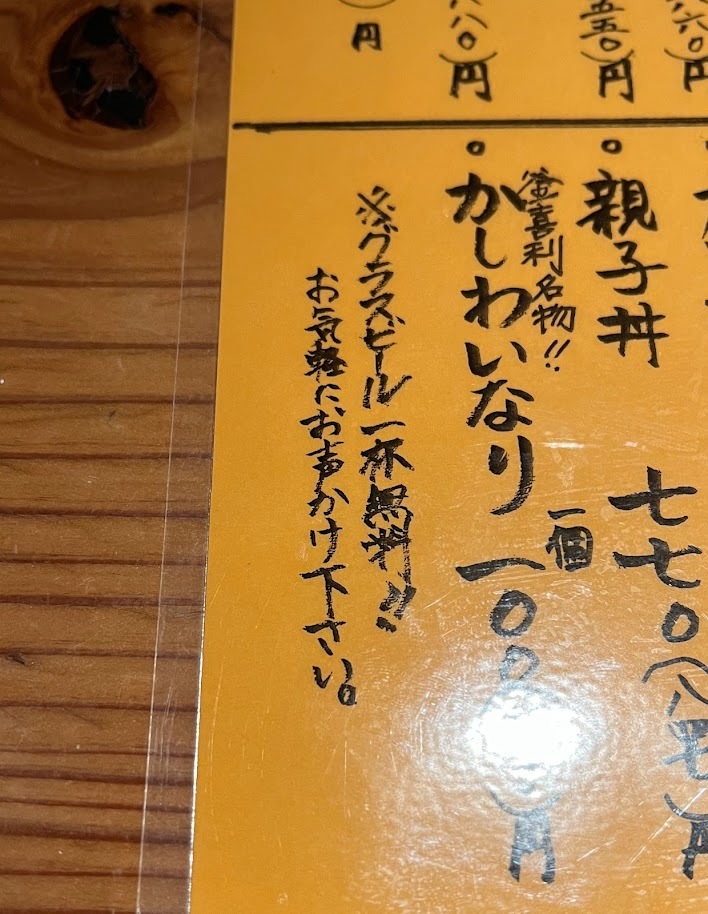 八六〇)円
五五〇)円
八八〇)円
円
親子丼 七七〇(八
釜喜利名物!!
かしわいなり 一個 一〇〇
円
※グラスビール一杯無料!!
お気軽にお声かけ下さい。